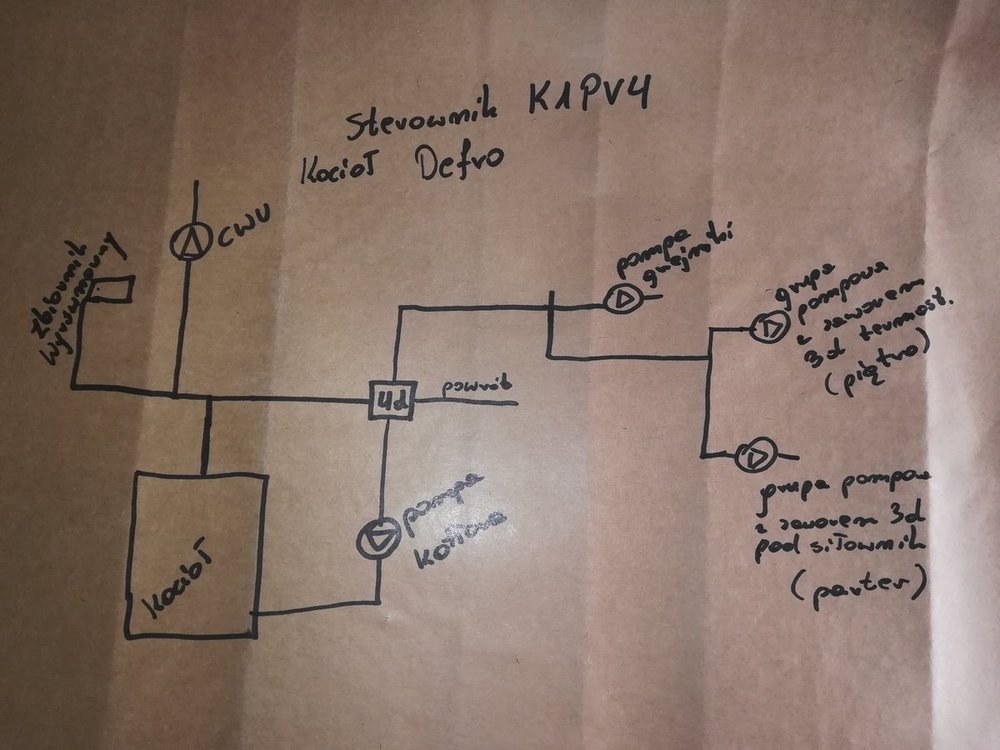 Sterownik K1PV4
Kocioł Defro
CWU
Zbiornik
wyrównawczy
pompa
grzejniki
grupa
pompowa
z zaworem
3d termost.
(piętro)
4d
powrót
pompa
kotłowa
kocioł
grupa pompowa
z zaworem 3d
pod siłownik
(parter)